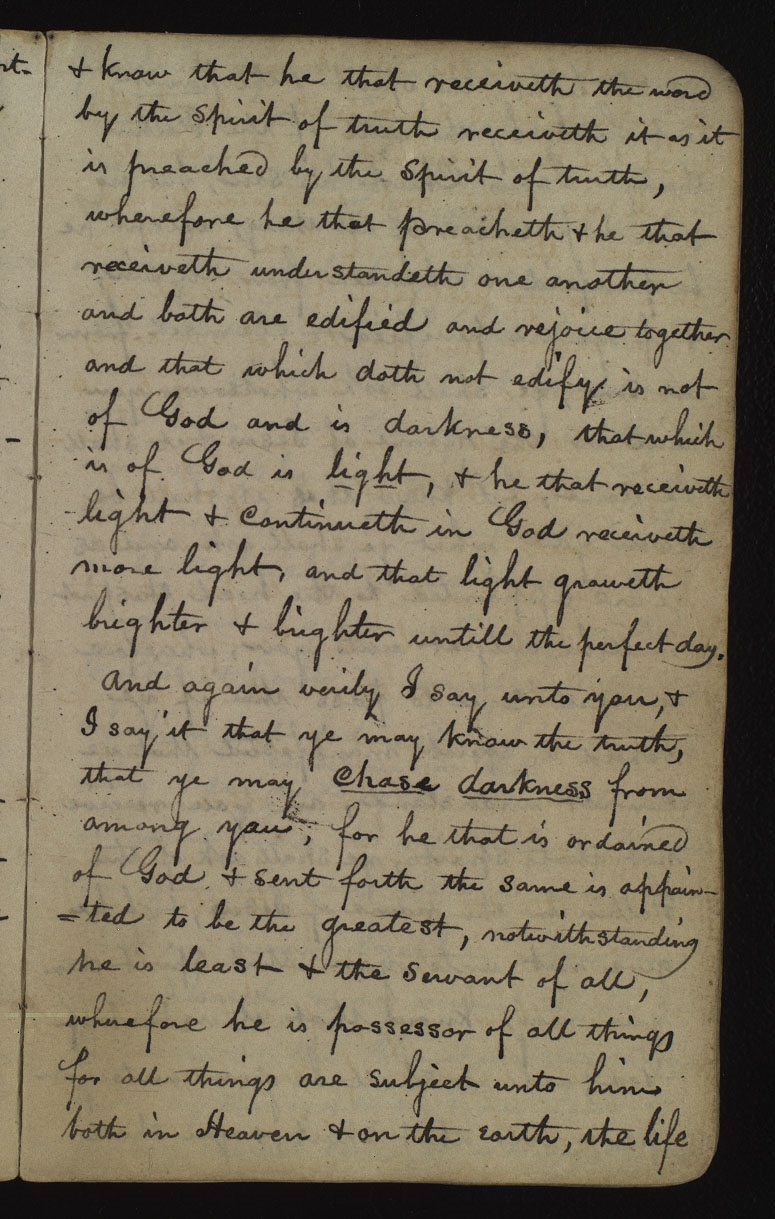 rt-
& know that he that receiveth the word
by the Spirit of truth receiveth it as it
is preached by the Spirit of truth,
wherefore he that preacheth & he that
receiveth understandeth one another
and both are edified and rejoice together
and that which doth not edify is not
of God and is darkness, that which
is of God is light, & he that receiveth
light & continueth in God receiveth
more light, and that light groweth
brighter & brighter untill the perfect day.
And again verily I say unto you, &
I say it that ye may know the truth,
that ye may chase darkness from
among you, for he that is ordained
of God & sent forth the same is appoin-
=ted to be the greatest, notwithstanding
he is least & the Servant of all,
wherefore he is possessor of all things
for all things are subject unto him
both in Heaven & on the earth, the life